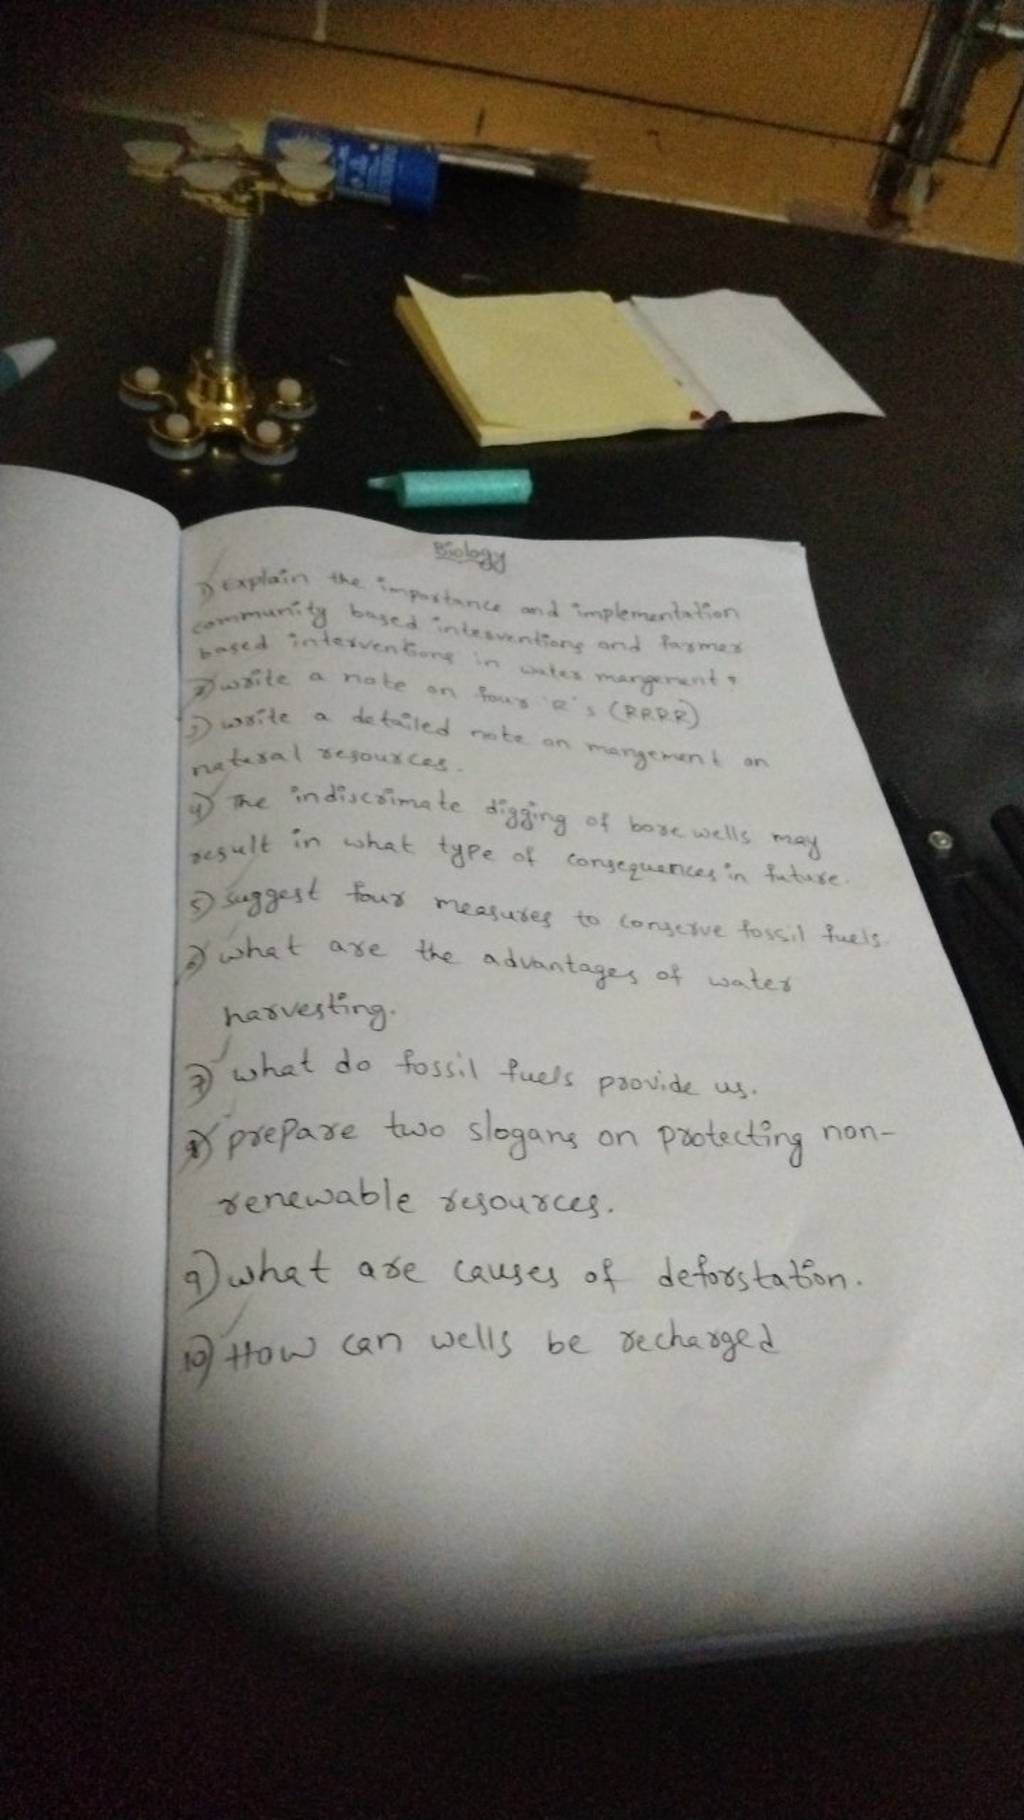 Biology
1) Explain the importance and implementation
community based interventions and farmer
based interventions in water mangement?
2) write a note on four 'R's (RRRR)
3) write a detailed note on mangement on
natural resources.
4) The indiscrimate digging of bore wells may
result in what type of consequences in future.
5) suggest four measures to conserve fossil fuels.
6) what are the advantages of water
harvesting.
7) what do fossil fuels provide us.
8) prepare two slogans on protecting non-
renewable resources.
9) what are causes of deforstation.
10) How can wells be recharged